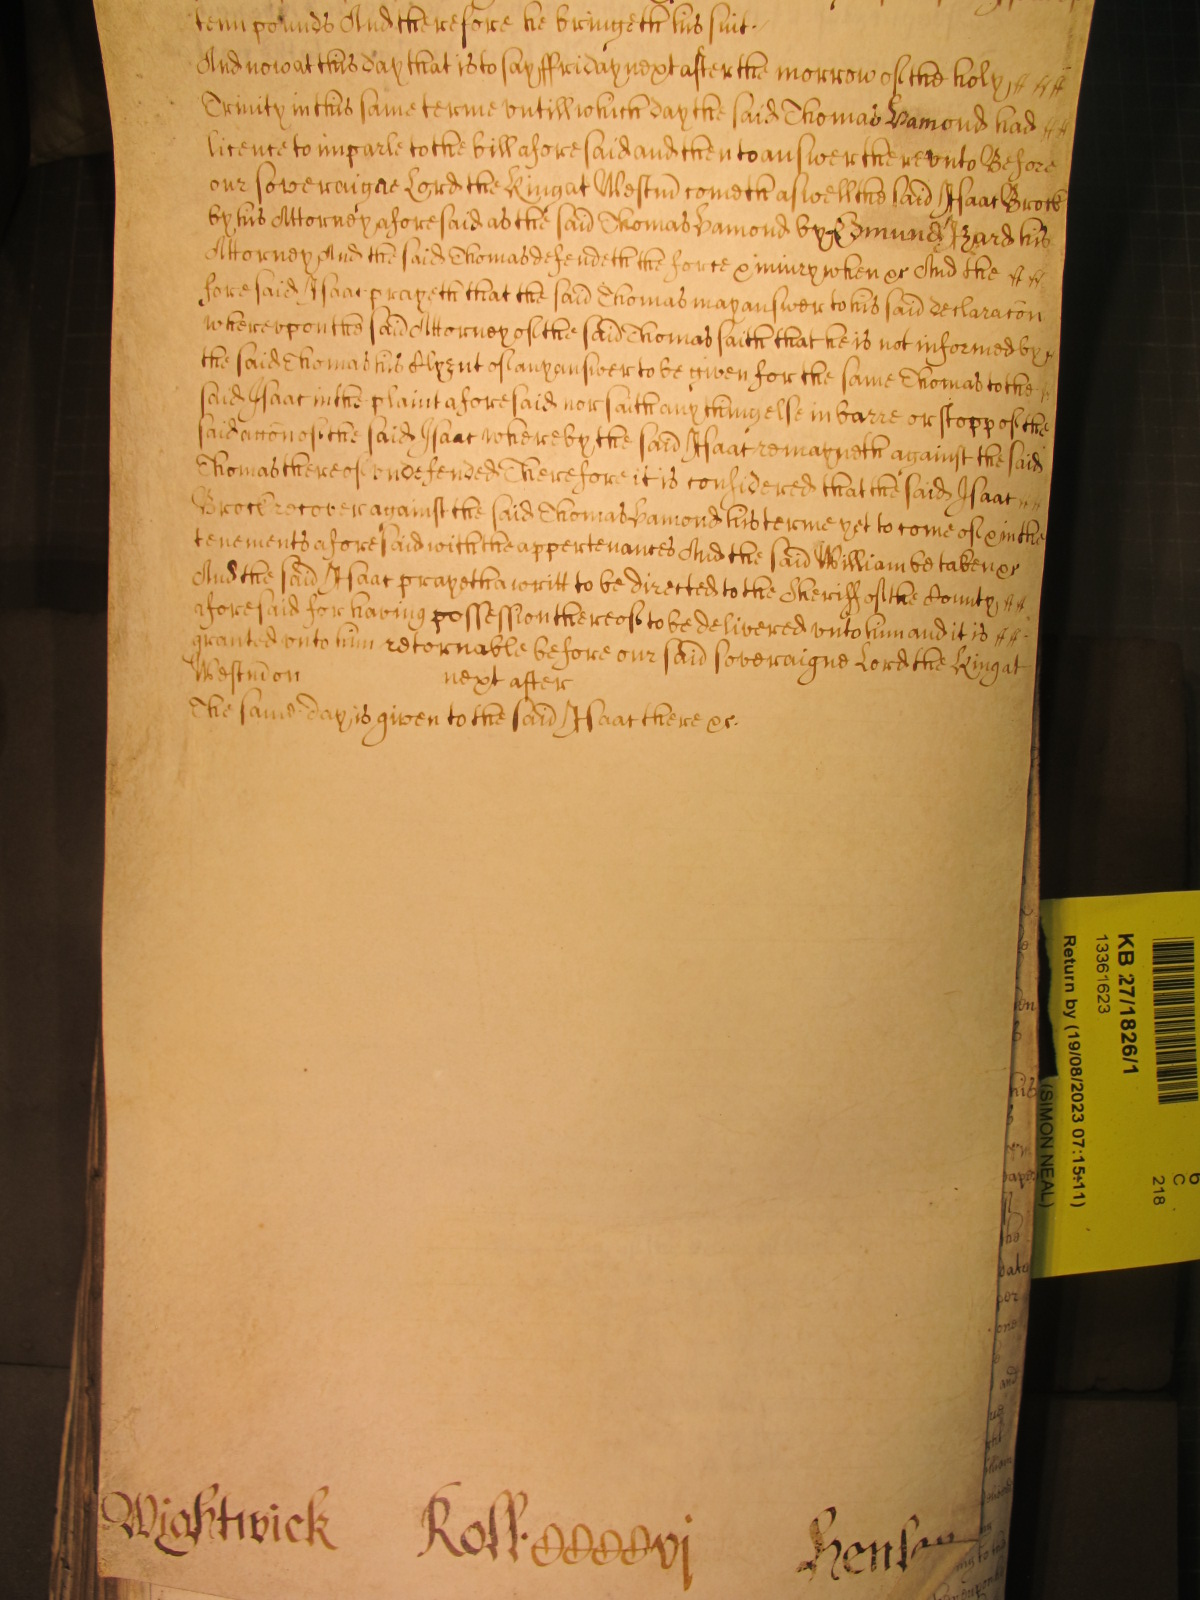 tenn pounds And therefore he bringeth his suit.
And now at this day that is to say ffriday next after the morrow of the holy
Trinity in this same terme untill which day the said Thomas Hamond had
licence to imparle to the bill aforesaid and then to answer thereunto Before
our soveraigne Lord the King at Westm cometh aswell the said Isaac Brock
by his Attorney aforesaid as the said Thomas Hamond by Edmund Izard his
Attorney And the said Thomas defendeth the force & iniury when &c And the
foresaid Isaac prayeth that the said Thomas may answer to his said declaracon
whereupon the said Attorney of the said Thomas saith that he is not informed by
the said Thomas his Clyent of any answer to be given for the same Thomas to the
said Isaac in the plaint aforesaid nor saith any thing else in barre or stopp of the
said accon of the said Isaac whereby the said Isaac remayneth against the said
Thomas thereof undefended Therefore it is considered that the said Isaac
Brock recover against the said Thomas Hamond his terme yet to come of & in the
tenements aforesaid with the appertenances And the said William be taken &c
And the said Isaac prayeth a writt to be directed to the Sheriff of the County
aforesaid for having possession thereof to be delivered unto him and it is
granted unto him retornable before our said soveraigne Lord the King at
Westm on next after
The same day is given to the said Isaac there &c.
Wightwick Roll. CCCCvj Henley
KB 27/1826/1
13361623
Return by (19/08/2023 07:15:11)
(SIMON NEAL)
6
C
218